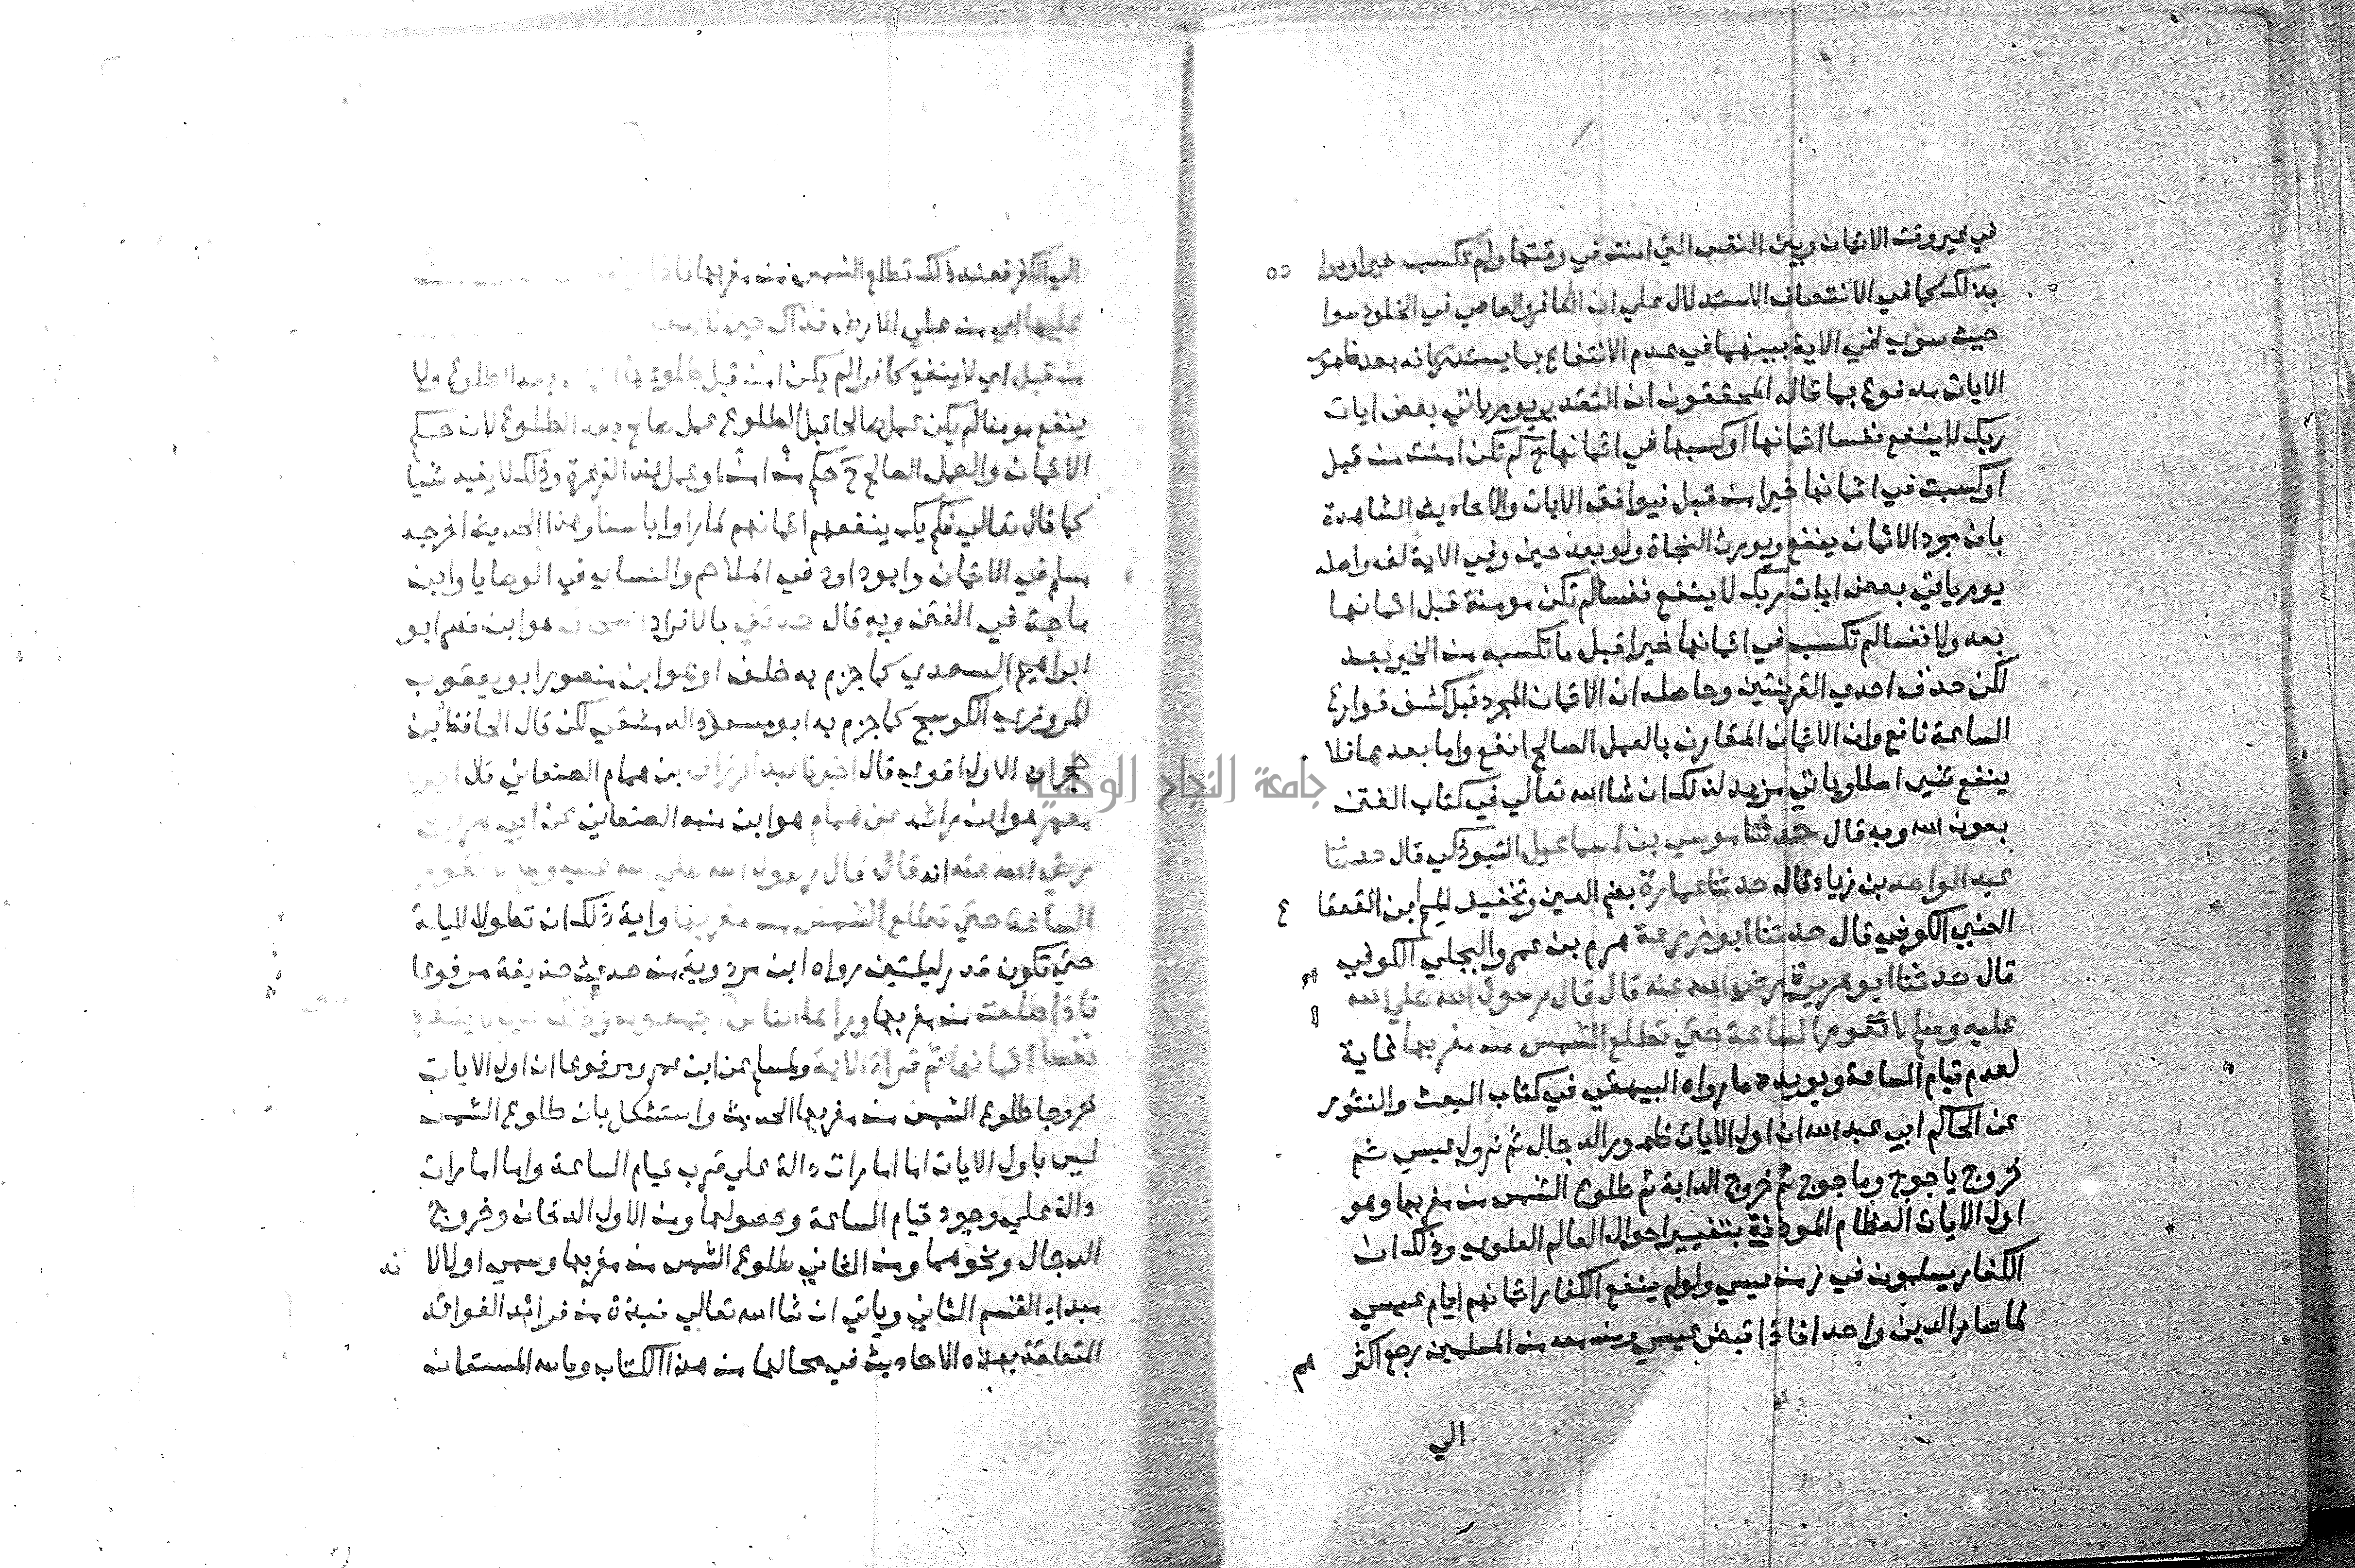 في غير وقت الايمان وبين النفس التي امنت في وقتها ولم تكسب خيرا ومرا ده
بذلك كما في الانتصاف الاستدلال علي ان الكافر والعاصي في الخلود سوا
حيث سوي في الاية بينهما في عدم الانتفاع بما يستدركانه بعد ظهور
الايات مدفوع بما قاله المحققون ان التقدير يوم ياتي بعض ايات
ربك لا ينفع نفسا ايمانها او كسبها في ايمانها ح لم تكن امنت من قبل
او كسبت في ايمانها خيرا من قبل فيوافق الايات والاحاديث الشاهدة
بان مجرد الايمان ينفع ويورث النجاة ولو بعد حين وفي الاية لف واصله
يوم ياتي بعض ايات ربك لا ينفع نفسا لم تكن مومنة قبل ايمانها
بعد ولا نفسا لم تكسب في ايمانها خيرا قبل ما تكسبه من الخير بعد
لكن حذف احدي القرينتين وحاصله ان الايمان المجرد قبل كشف قوارع
الساعة نافع وان الايمان المقارن بالعمل الصالح انفع واما بعدها فلا
ينفع شي اصلا وياتي مزيد لذلك ان شا الله تعالي في كتاب الفتن
بعون الله وبه قال حدثنا موسي بن اسماعيل التبوذكي قال حدثنا
عبد الواحد بن زياد قال حدثنا عمارة بضم العين وتخفيف الميم ابن القعقا ع
الضبي الكوفي قال حدثنا ابو زرعة هرم بن عمرو البجلي الكوفي
قال حدثنا ابو هريرة رضي الله عنه قال قال رسول الله صلي الله
عليه وسلم لا تقوم الساعة حتي تطلع الشمس من مغربها غاية
لعدم قيام الساعة ويويده ما رواه البيهقي في كتاب البعث والنشور
عن الحاكم ابي عبد الله ان اول الايات ظهور الدجال ثم نزول عيسي ثم
خروج ياجوج وماجوج ثم خروج الدابة ثم طلوع الشمس من مغربها وهو
اول الايات العظام الموذنة بتغيير احوال العالم العلوي وذلك ان
الكفار يسلمون في زمن عيسي ولو لم ينفع الكفار ايمانهم ايام عيسي
لما صار الدين واحدا فاذا قبض عيسي ومن معه من المسلمين رجع اكثر هم
الي
الي الكفر فعند ذلك تطلع الشمس من مغربها فاذا
عليها اي من علي الارض فذاك حين لا ينفع
من قبل اي لا ينفع كافرا لم يكن امن قبل طلوعها بعد الطلوع ولا
ينفع مومنا لم يكن عمل صالحا قبل الطلوع عمل صالح بعد الطلوع لان حكم
الايمان والعمل الصالح ح حكم من امن او عمل عند الغرغرة وذلك لا يفيد شيا
كما قال تعالي فلم يك ينفعهم ايمانهم لما راوا باسنا وهذا الحديث اخرجه
مسلم في الايمان وابو داود في الملاحم والنساي في الوصايا وابن
ماجة في الفتن وبه قال حدثني بالافراد اسحاق هو ابن نصر ابو
ابراهيم السعدي كما جزم به خلف او هو ابن منصور ابو يعقوب
المروزي الكوسج كما جزم به ابو مسعود الدمشقي لكن قال الحافظ ابن
حجر ان الاول اقوي قال اخبرنا عبد الرزاق بن همام الصنعاني قال اخبرنا
معمر هو ابن راشد عن همام هو ابن منبه الصنعاني عن ابي هريرة
رضي الله عنه انه قال قال رسول الله صلي الله عليه وسلم لا تقوم
الساعة حتي تطلع الشمس من مغربها واية ذلك ان تطول الليلة
حتي تكون قدر ليلتين رواه ابن مردوية من حديث حذيفة مرفوعا
فاذا طلعت من مغربها وراها الناس اجمعون وذلك حين لا ينفع
نفسا ايمانها ثم قرا الاية ولمسلم عن ابن عمرو مرفوعا ان اول الايات
خروجا طلوع الشمس من مغربها الحديث واستشكل بان طلوع الشمس
ليس باول الايات اما امارات دالة علي قرب قيام الساعة واما امارات
دالة علي وجود قيام الساعة وحصولها ومن الاول الدخان وخروج
الدجال ونحوهما ومن الثاني طلوع الشمس من مغربها وسمي اولا لا نه
مبدا القسم الثاني وياتي ان شا الله تعالي نبذة من فرائد الفوائد
المتعلقة بهذه الاحاديث في محالها من هذا الكتاب وبالله المستعان
جامعة النجاح الوطنية